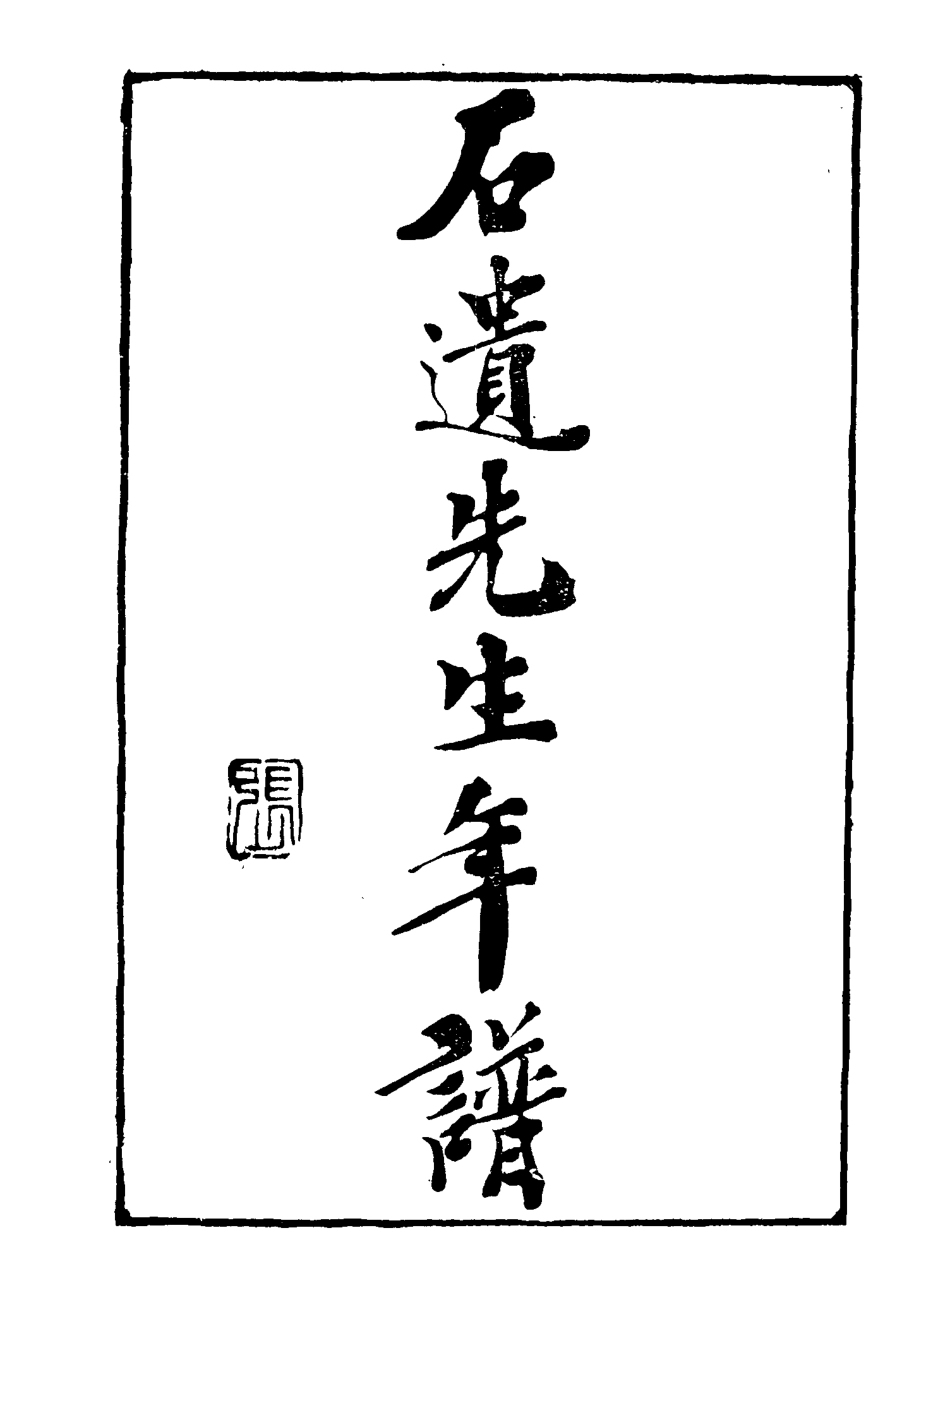 石遺先生年譜